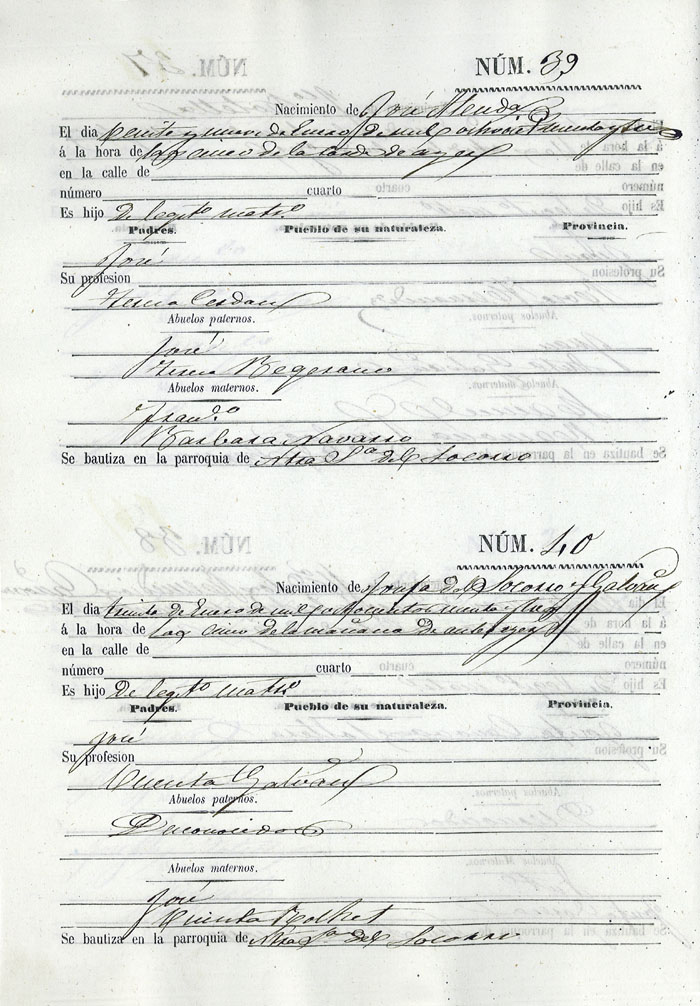 NÚM. 39
Nacimiento de José
El dia Veinte y nueve de Enero de mil ochocientos
á la hora de las cinco de la tarde de ayer
en la calle de
número cuarto
Es hijo De legto matro
Padres. Pueblo de su naturaleza. Provincia.
José
Su profesion
Teresa Cerdan
Abuelos paternos.
José
Teresa
Abuelos maternos.
Franco
Barbara Navarro
Se bautiza en la parroquia de Ntra Sa del Socorro
NÚM. 40
Nacimiento de Josefa del Socorro y Galvañ
El dia treinta de Enero de mil ochocientos
á la hora de las cinco de la mañana de anteayer
en la calle de
número cuarto
Es hijo De legto matro
Padres. Pueblo de su naturaleza. Provincia.
José
Su profesion
Vicenta Galvañ
Abuelos paternos.
Desconocidos
Abuelos maternos.
José
Vicenta
Se bautiza en la parroquia de Ntra Sa del Socorro